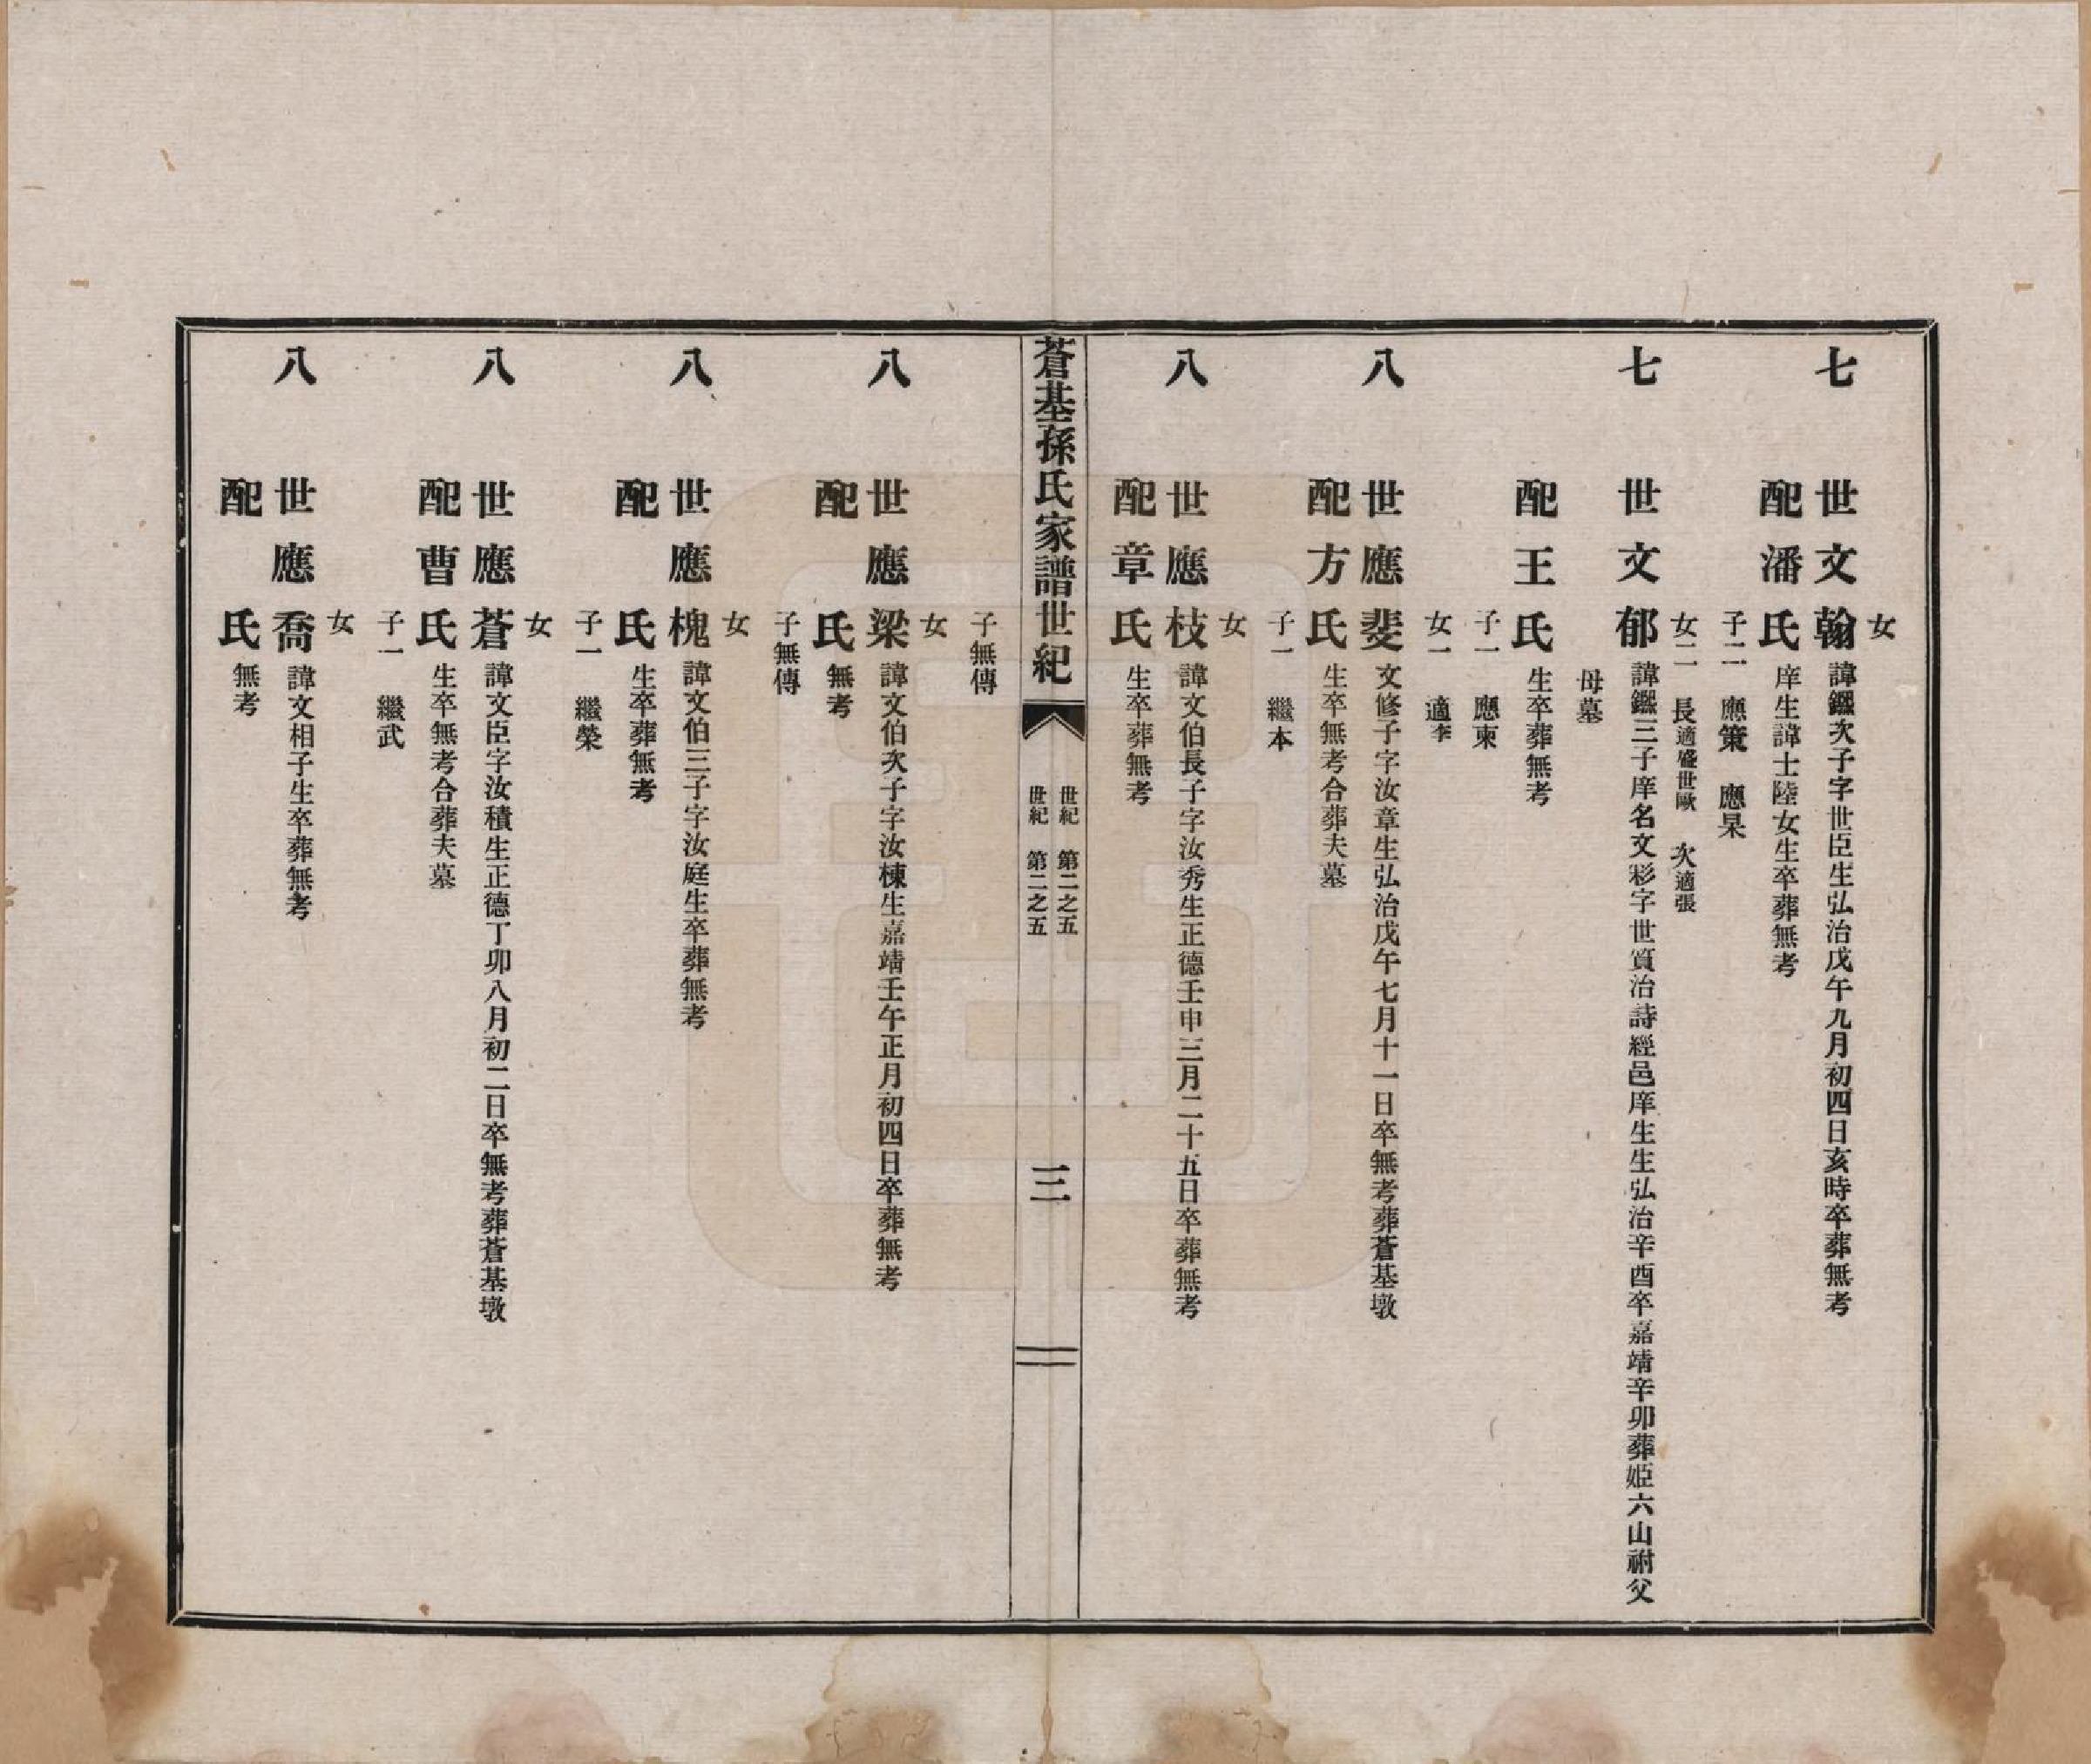 女
七　世文翰　諱鑑次子字世臣生弘治戊午九月初四日亥時卒葬無考
配潘氏　庠生諱士陸女生卒葬無考
子二　應策　應杲
女二　長適盛世歐　次適張
七　世文郁　諱鑑三子庠名文彩字世質治詩經邑庠生生弘治辛酉卒嘉靖辛卯葬姫六山祔父
母墓
配王氏　生卒葬無考
子一　應東
女一　適李
八　世應斐　文修子字汝章生弘治戊午七月十一日卒無考葬蒼基墩
配方氏　生卒無考合葬夫墓
子一　繼本
女
八　世應枝　諱文伯長子字汝秀生正德壬申三月二十五日卒葬無考
配章氏　生卒葬無考
蒼基孫氏家譜世紀
世紀　第二之五
世紀　第二之五
三
子無傳
女
八　世應梁　諱文伯次子字汝棟生嘉靖壬午正月初四日卒葬無考
配　氏　無考
子無傳
女
八　世應槐　諱文伯三子字汝庭生卒葬無考
配　氏　生卒葬無考
子一　繼榮
女
八　世應蒼　諱文臣字汝積生正德丁卯八月初二日卒無考葬蒼基墩
配曹氏　生卒無考合葬夫墓
子一　繼武
女
八　世應喬　諱文相子生卒葬無考
配　氏　無考